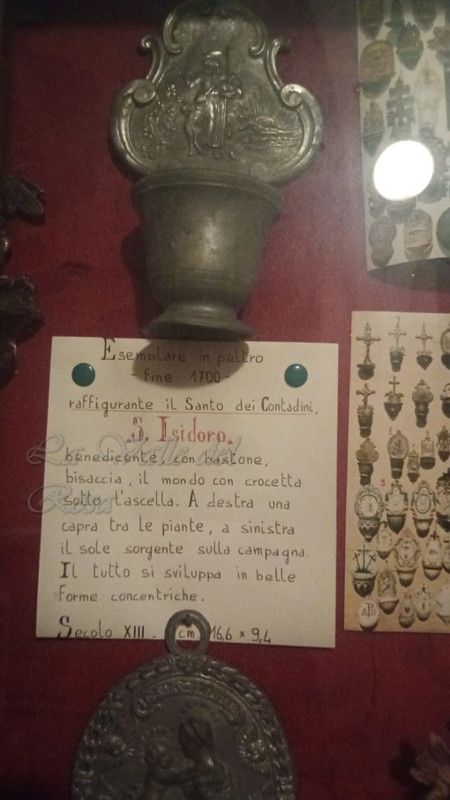 Esemplare in peltro
- fine 1700 -
raffigurante il Santo dei Contadini,
"S. Isidoro"
benedicente, con bastone,
bisaccia, il mondo con crocetta
sotto l'ascella. A destra una
capra tra le piante, a sinistra
il sole sorgente sulla campagna.
Il tutto si sviluppa in belle
forme concentriche.
Secolo XIII - cm 16,6 x 9,4
La Valle del